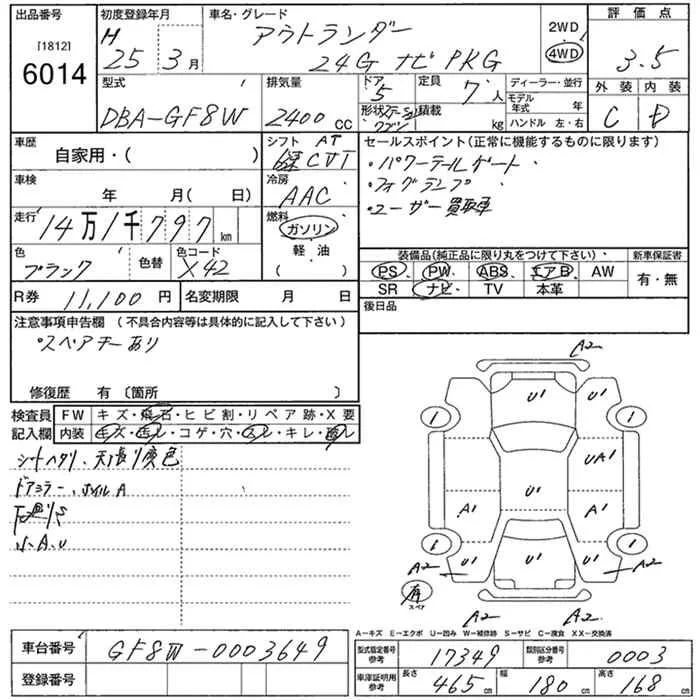 出品番号
[1812]
6014
初度登録年月
H 25 3月
車名・グレード
アウトランダー
24G ナビPKG
2WD
4WD
評価点
3.5
外装 内装
C D
型式
DBA-GF8W
排気量
2400 cc
ドア
5
形状 ステーションワゴン
定員
7人
積載
kg
ディーラー・並行
モデル年式 年
ハンドル 左・右
車歴
自家用・( )
シフト AT
CVT
セールスポイント(正常に機能するものに限ります)
・パワーテールゲート
・フォグランプ
・ユーザー買取車
車検
年 月( 日)
冷房
AAC
走行
14万1千797km
燃料
ガソリン
軽・油
( )
色
ブラック
色替
色コード
X42
装備品(純正品に限り丸をつけて下さい)
PS PW ABS エアB AW
SR ナビ TV 本革
新車保証書
有・無
R券 11,100円
名変期限 月 日
後日品
注意事項申告欄(不具合内容等は具体的に記入して下さい)
・スペアキーあり
修復歴 有〔箇所 〕
検査員記入欄
FW キズ・飛石・ヒビ割・リペア跡・X要
内装 キズ・汚レ・コゲ・穴・スレ・キレ・剥レ
シートヘタリ、天張り変色
ドアミラー、ホイルA
下廻りS
小A、U
A2
U1
1 1
UA1
U1
A1 A1
1 1
A2 U1 U1 U1 A2
有
スペア
A2 A2
A-キズ E-エクボ U-凹み W-補修跡 S-サビ C-腐食 XX-交換済
車台番号 GF8W-0003649
登録番号
型式指定番号
参考
17349
類別区分番号
参考
0003
車庫証明用
参考
長さ 465cm
幅 180cm
高さ 168cm